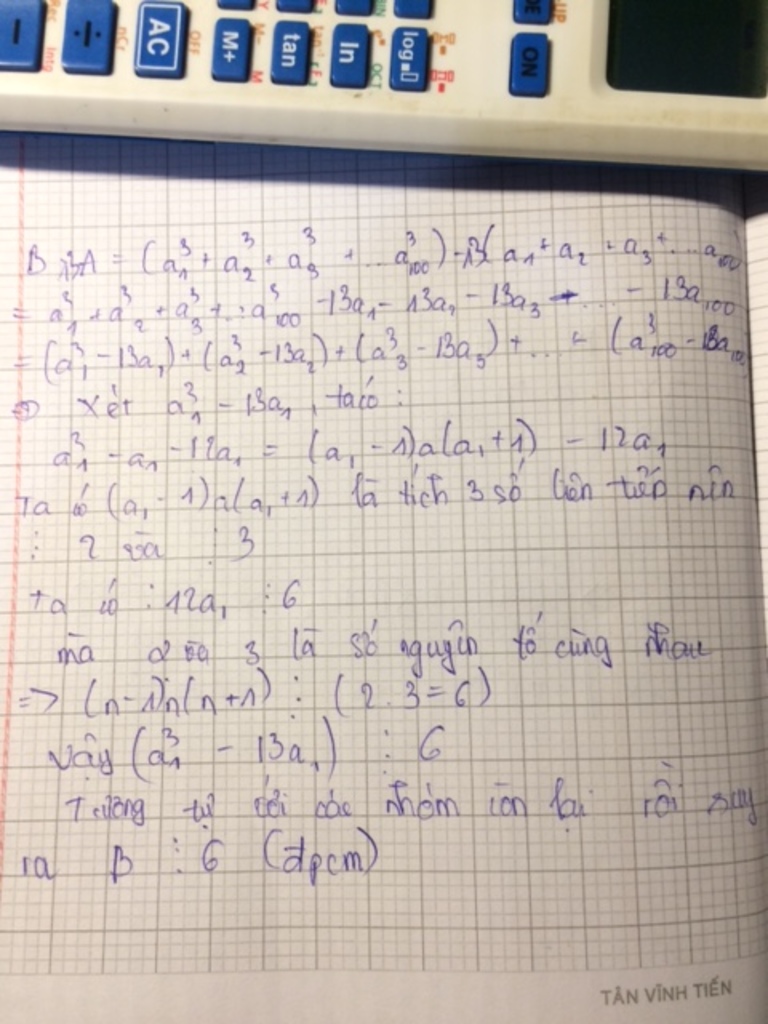 AC
OFF
nCr
M+
M
tan
ln
OCT
log
ON
B - 13A = (a₁³ + a₂³ + a₃³ + ... a₁₀₀³) - 13(a₁ + a₂ + a₃ + ... a₁₀₀
= a₁³ + a₂³ + a₃³ + ... a₁₀₀³ - 13a₁ - 13a₂ - 13a₃ - ... - 13a₁₀₀
= (a₁³ - 13a₁) + (a₂³ - 13a₂) + (a₃³ - 13a₃) + ... + (a₁₀₀³ - 13a₁₀₀
⇒ Xét a₁³ - 13a₁, ta có :
a₁³ - a₁ - 12a₁ = (a₁ - 1)a(a₁ + 1) - 12a₁
Ta có (a₁ - 1)a(a₁ + 1) là tích 3 số liên tiếp nên
⋮ 2 và ⋮ 3
Ta có : 12a₁ ⋮ 6
mà 2 và 3 là số nguyên tố cùng nhau
=> (n - 1)n(n + 1) ⋮ (2 . 3 = 6)
Vậy (a₁³ - 13a₁) ⋮ 6
Tương tự với các nhóm còn lại rồi suy
ra B ⋮ 6 (đpcm)
TÂN VĨNH TIẾN